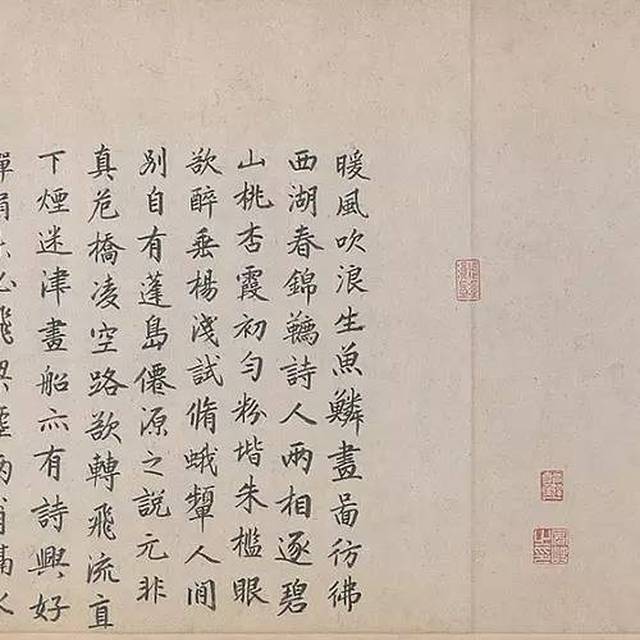 暖風吹浪生魚鱗畫啚彷彿
西湖春錦韉詩人兩相逐碧
山桃杏霞初勻粉墻朱檻眼
欲醉垂楊淺試脩蛾顰人間
別自有蓬島僊源之說元非
真危橋凌空路欲轉飛流直
下煙迷津畫船亦有詩興好